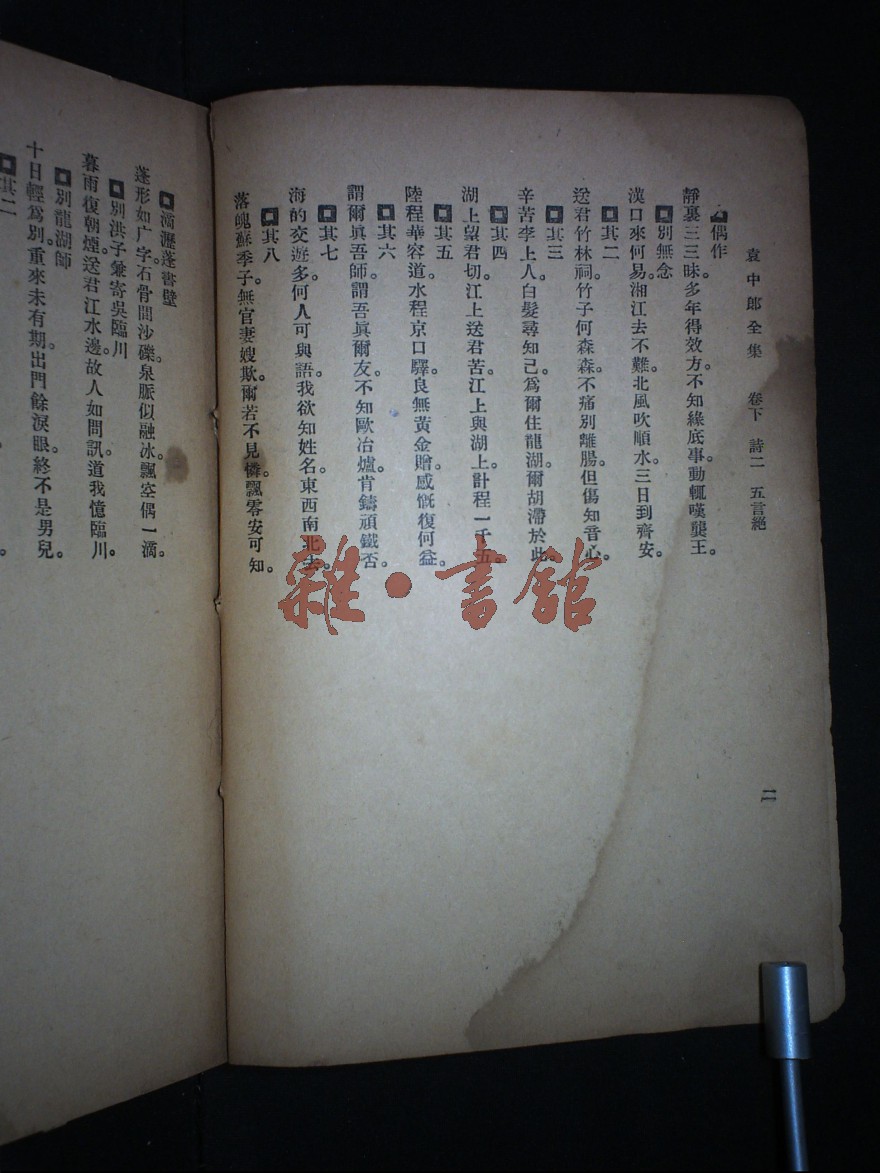 袁中郎全集 卷下 詩二 五言絕
偶作
靜裏三三昧多年得效方。不知緣底事動輒嘆龔王。
別無念
漢口來何易。湘江去不難。北風吹順水三日到齊安
其二
送君竹林祠竹子何森森。不痛別離腸但傷知音心。
其三
辛苦李上人白髮尋知己。爲爾住龍湖爾胡滯於此。
其四
湖上望君切。江上送君苦。江上與湖上計程一千五。
其五
陸程華容道水程京口驛。良無黃金贈感慨復何益。
其六
謂爾眞吾師。謂吾眞爾友。不知歐冶爐肯鑄頑鐵否。
其七
海的交遊多。何人可與語。我欲知姓名東西南北去。
其八
落魄蘇季子。無官妻嫂欺。爾若不見憐。飄零安可知。
二
滴瀝蓬書壁
蓬形如广字石骨間沙礫。泉脈似融冰。飄空偶一滴
別洪子兼寄吳臨川
暮雨復朝煙。送君江水邊。故人如問訊。道我憶臨川。
別龍湖師
十日輕爲別。重來未有期。出門餘淚眼。終不是男兒。
其二
雜·書館